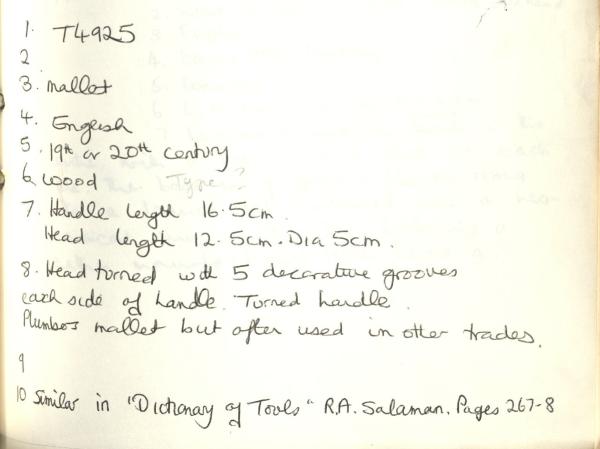 1. T4925
2
3. mallet
4. English
5. 19th or 20th century
6. wood Type?
7. Handle length 16.5cm.
Head length 12.5cm. Dia 5cm.
8. Head turned with 5 decorative grooves
each side of handle. Turned handle.
Plumbers mallet but often used in other trades.
9
10 Similar in "Dictionary of Tools" R.A. Salaman. Pages 267-8